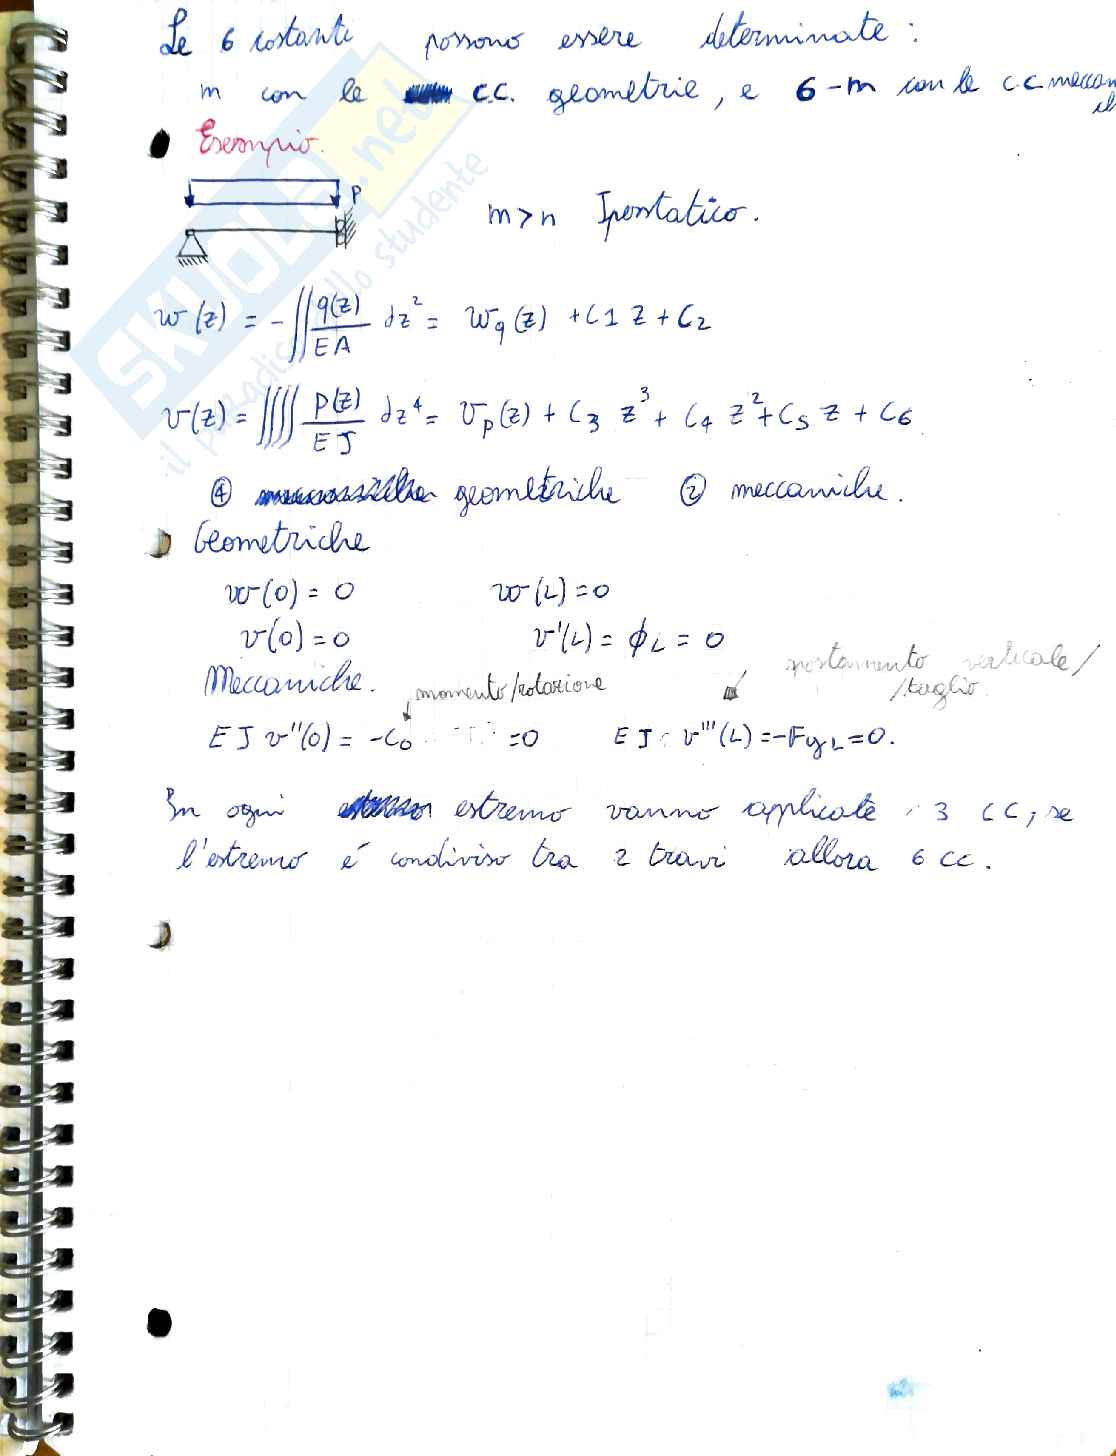 Le 6 costanti possono essere determinate:
m con le c.c. geometrie, e 6-m con le c.c meccan
Esempio.
P
m>n Ipostatico.
w(z) = -∬ q(z)/EA dz² = Wq(z) + C1 z + C2
v(z) = ⨌ P(z)/EJ dz⁴ = Vp(z) + C3 z³ + C4 z² + C5 z + C6
④ geometriche ② meccaniche.
Geometriche
w(0) = 0 w(L) = 0
v(0) = 0 v'(L) = ϕL = 0
Meccaniche. momento/rotazione spostamento verticale/
/taglio.
EJ v''(0) = -C0 = 0 EJ v'''(L) = -FyL = 0.
In ogni estremo vanno applicate 3 CC, se
l'estremo é condiviso tra 2 travi allora 6 cc.
SKUOLA.net
il paradiso dello studente